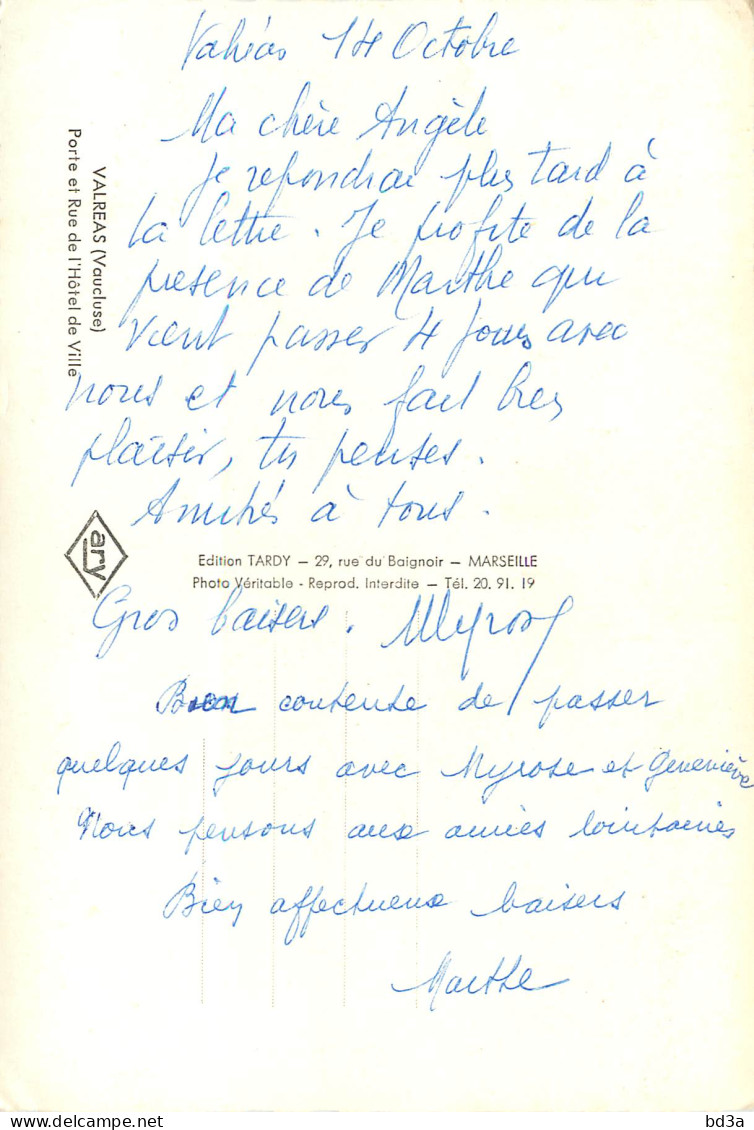 Valréas 14 Octobre
Ma chère Angèle
Je repondrai plus tard à
ta lettre. Je profite de la
presence de Marthe qui
vient passer 4 jours avec
nous et nous fait bien
plaisir, tu penses.
Amitiés à tous.
Gros baisers. Myrose
Bien contente de passer
quelques jours avec Myrose et Geneviève
Nous pensons aux amies lointaines
Bien affectueux baisers
Marthe
VALREAS (Vaucluse)
Porte et Rue de l'Hôtel de Ville
ary
Edition TARDY — 29, rue du Baignoir — MARSEILLE
Photo Véritable - Reprod. Interdite — Tél. 20. 91. 19
bd3a